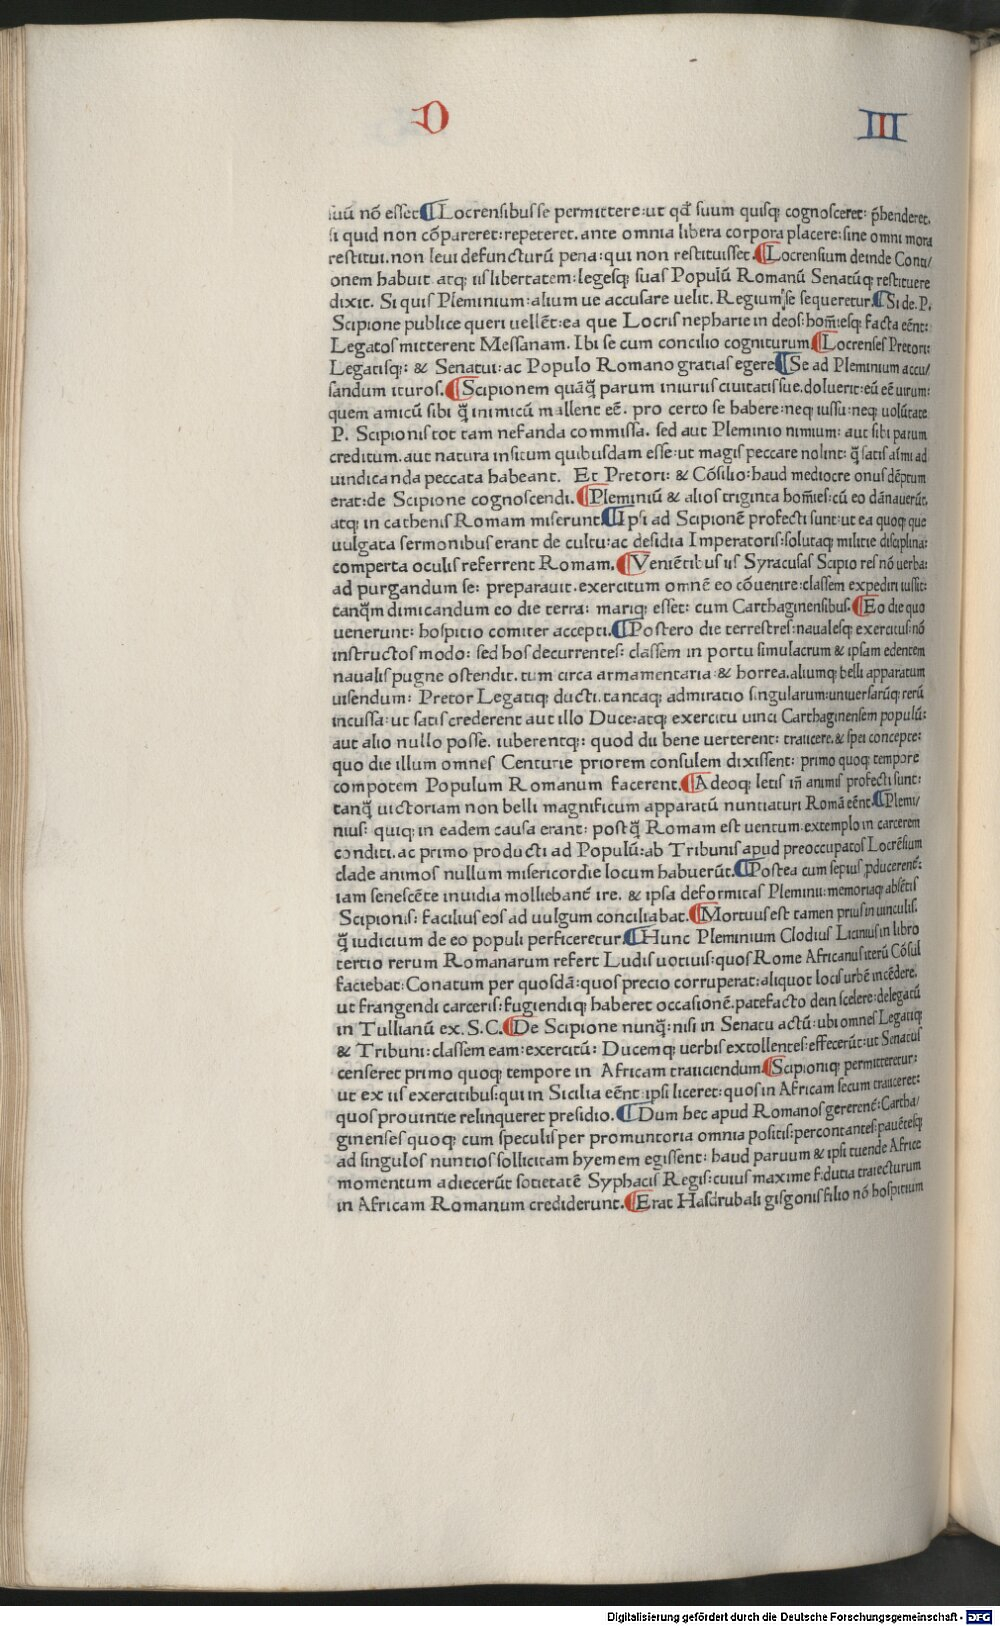 D
III
suū nō esset ¶ Locrensibus se permittere: ut qđ suum quisq; cognosceret: p̄henderet.
si quid non cōpareret: repeteret. ante omnia libera corpora placere: sine omni mora
restitui. non leui defuncturū pena: qui non restituisset. ¶ Locrensium deinde Conti/
onem habuit atq; iis libertatem: legesq; suas Populū Romanū Senatūq; restituere
dixit. Si quis Pleminium: alium ue accusare uelit. Regium se sequeretur. ¶ Si de. P.
Scipione publice queri uellēt: ea que Locris nepharie in deos: hom̄iesq; facta eēnt:
Legatos mitterent Messanam. Ibi se cum concilio cogniturum. ¶ Locrenses Pretori:
Legatisq;: & Senatui: ac Populo Romano gratias egere ¶ Se ad Pleminium accu/
sandum ituros. ¶ Scipionem quāq̄ parum iniuriis ciuitatis sue. doluerit: eū eē uirum:
quem amicū sibi q̄ inimicū mallent eē. pro certo se habere: neq; iussu: neq; uolūtate
P. Scipionis tot tam nefanda commissa. sed aut Pleminio nimium: aut sibi parum
creditum. aut natura insitum quibusdam esse: ut magis peccare nolint: q̄ satis aīmi ad
uindicanda peccata habeant. Et Pretori: & Cōsilio: haud mediocre onus dēptum
erat: de Scipione cognoscendi. ¶ Pleminiū & alios triginta hom̄ies: cū eo dānauerūt.
atq; in cathenis Romam miserunt. ¶ Ipsi ad Scipionē profecti sunt: ut ea quoq; que
uulgata sermonibus erant de cultu: ac desidia Imperatoris: solutaq; militie disciplina:
comperta oculis referrent Romam. ¶ Veniētibus iis Syracusas Scipio res nō uerba:
ad purgandum se: preparauit. exercitum omnē eo cōuenire: classem expediri iussit:
tanq̄m dimicandum eo die terra: mariq; esset: cum Carthaginensibus. ¶ Eo die quo
uenerunt: hospitio comiter accepti. ¶ Postero die terrestres: naualesq; exercitus: nō
instructos modo: sed hos decurrentes: classem in portu simulacrum & ipsam edentem
naualis pugne ostendit. tum circa armamentaria: & horrea. aliumq; belli apparatum
uisendum: Pretor Legatiq; ducti. tantaq; admiratio singularum: uniuersarūq; rerū
incussa: ut satis crederent aut illo Duce: atq; exercitu uinci Carthaginensem populū:
aut alio nullo posse. iuberentq;: quod dii bene uerterent: traiicere. & spei concepte:
quo die illum omnes Centurie priorem consulem dixissent: primo quoq; tempore
compotem Populum Romanum facerent. ¶ Adeoq; letis iīi animis profecti sunt:
tanq̄ uictoriam non belli magnificum apparatū nuntiaturi Romā eēnt. ¶ Plemi/
nius: quiq; in eadem causa erant: postq̄ Romam est uentum. extemplo in carcerem
conditi. ac primo producti ad Populū: ab Tribunis apud preoccupatos Locrēsium
clade animos nullum misericordie locum habuerūt. ¶ Postea cum sepius ꝓducerent:
iam senescēte inuidia molliebant ire. & ipsa deformitas Pleminii: memoriaq; absētis
Scipionis: facilius eos ad uulgum conciliabat. ¶ Mortuus est tamen prius in uinculis.
q̄ iudicium de eo populi perficeretur. ¶ Hunc Pleminium Clodius Licinius in libro
tertio rerum Romanarum refert Ludis uotiuis: quos Rome Africanus iterū Cōsul
faciebat: Conatum per quosdā: quos precio corruperat: aliquot locis urbē incēdere.
ut frangendi carceris: fugiendiq; haberet occasionē. patefacto dein scelere: delegatū
in Tullianū ex. S.C. ¶ De Scipione nunq̄: nisi in Senatu actū: ubi omnes Legatiq;
& Tribuni: classem eam: exercitū: Ducemq; uerbis extollentes: effecerūt: ut Senatus
censeret primo quoq; tempore in Africam traiiciendum. ¶ Scipioniq; permitteretur:
ut ex iis exercitibus: qui in Sicilia eēnt: ipsi liceret: quos in Africam secum traiiceret:
quos prouintie relinqueret presidio. ¶ Dum hec apud Romanos gererent: Cartha/
ginenses quoq; cum speculis per promuntoria omnia positis: percontantes: pauētesq;
ad singulos nuntios sollicitam hyemem egissent: haud paruum & ipsi tuende Africe
momentum adiecerūt societatē Syphacis Regis: cuius maxime fiducia traiecturum
in Africam Romanum crediderunt. ¶ Erat Hasdrubali gisgonis filio nō hospitium
Digitalisierung gefördert durch die Deutsche Forschungsgemeinschaft - DFG